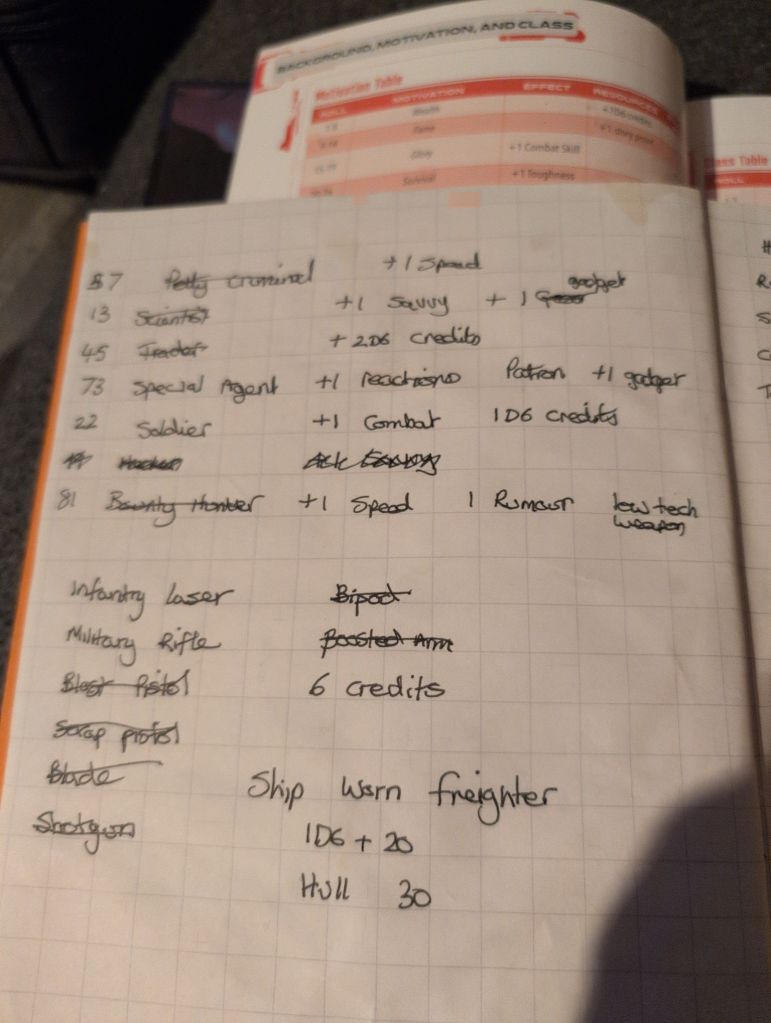 BACKGROUND, MOTIVATION, AND CLASS
Motivation Table
ROLL MOTIVATION EFFECT RESOURCES
Wealth +1D6 credits
Fame +1 story point
Glory +1 Combat Skill
Survival +1 Toughness
Class Table
ROLL
7 Petty criminal +1 Speed
13 Scientist +1 Savvy + 1 gadget
45 Trader + 2D6 credits
73 Special Agent +1 reactions Patron +1 gadget
22 Soldier +1 Combat 1D6 credits
Hacker
81 Bounty Hunter +1 Speed 1 Rumour low tech
weapon
Infantry Laser Bipod
Military Rifle Boosted Arm
Blast Pistol 6 credits
Scrap pistol
Blade
Ship Worn freighter
Shotgun
1D6 + 20
Hull 30